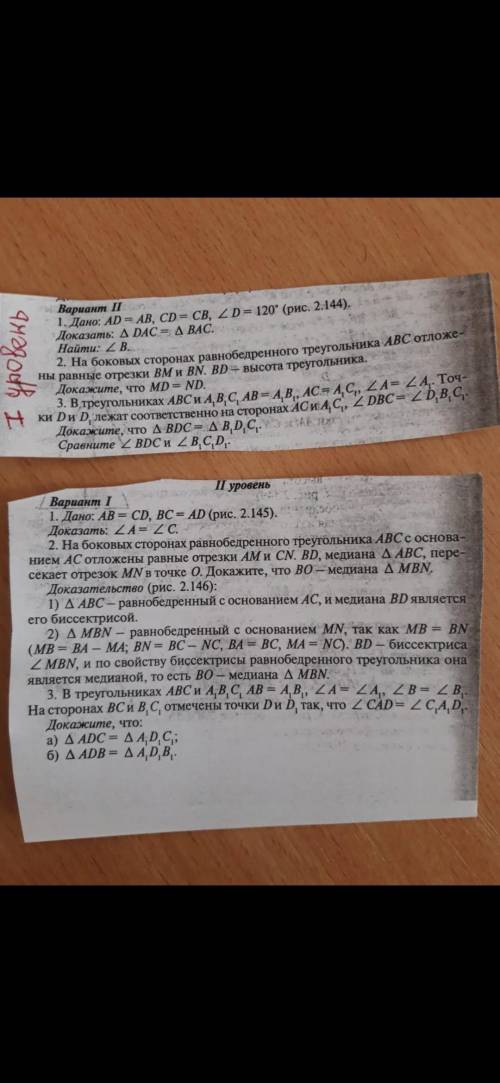 I уровень
Вариант II
1. Дано: AD = AB, CD = CB, ∠D = 120° (рис. 2.144).
Доказать: Δ DAC = Δ BAC.
Найти: ∠ B.
2. На боковых сторонах равнобедренного треугольника ABC отложе-
ны равные отрезки BM и BN. BD – высота треугольника.
Докажите, что MD = ND.
3. В треугольниках ABC и A₁B₁C₁ AB = A₁B₁, AC = A₁C₁, ∠A = ∠A₁. Точ-
ки D и D₁ лежат соответственно на сторонах AC и A₁C₁, ∠ DBC = ∠ D₁B₁C₁.
Докажите, что Δ BDC = Δ B₁D₁C₁.
Сравните ∠ BDC и ∠ B₁C₁D₁.
II уровень
Вариант I
1. Дано: AB = CD, BC = AD (рис. 2.145).
Доказать: ∠A = ∠ C.
2. На боковых сторонах равнобедренного треугольника ABC с основа-
нием AC отложены равные отрезки AM и CN. BD, медиана Δ ABC, пере-
секает отрезок MN в точке O. Докажите, что BO – медиана Δ MBN.
Доказательство (рис. 2.146):
1) Δ ABC – равнобедренный с основанием AC, и медиана BD является
его биссектрисой.
2) Δ MBN – равнобедренный с основанием MN, так как MB = BN
(MB = BA – MA; BN = BC – NC, BA = BC, MA = NC). BD – биссектриса
∠ MBN, и по свойству биссектрисы равнобедренного треугольника она
является медианой, то есть BO – медиана Δ MBN.
3. В треугольниках ABC и A₁B₁C₁ AB = A₁B₁, ∠A = ∠A₁, ∠ B = ∠ B₁.
На сторонах BC и B₁C₁ отмечены точки D и D₁ так, что ∠ CAD = ∠ C₁A₁D₁.
Докажите, что:
а) Δ ADC = Δ A₁D₁C₁;
б) Δ ADB = Δ A₁D₁B₁.